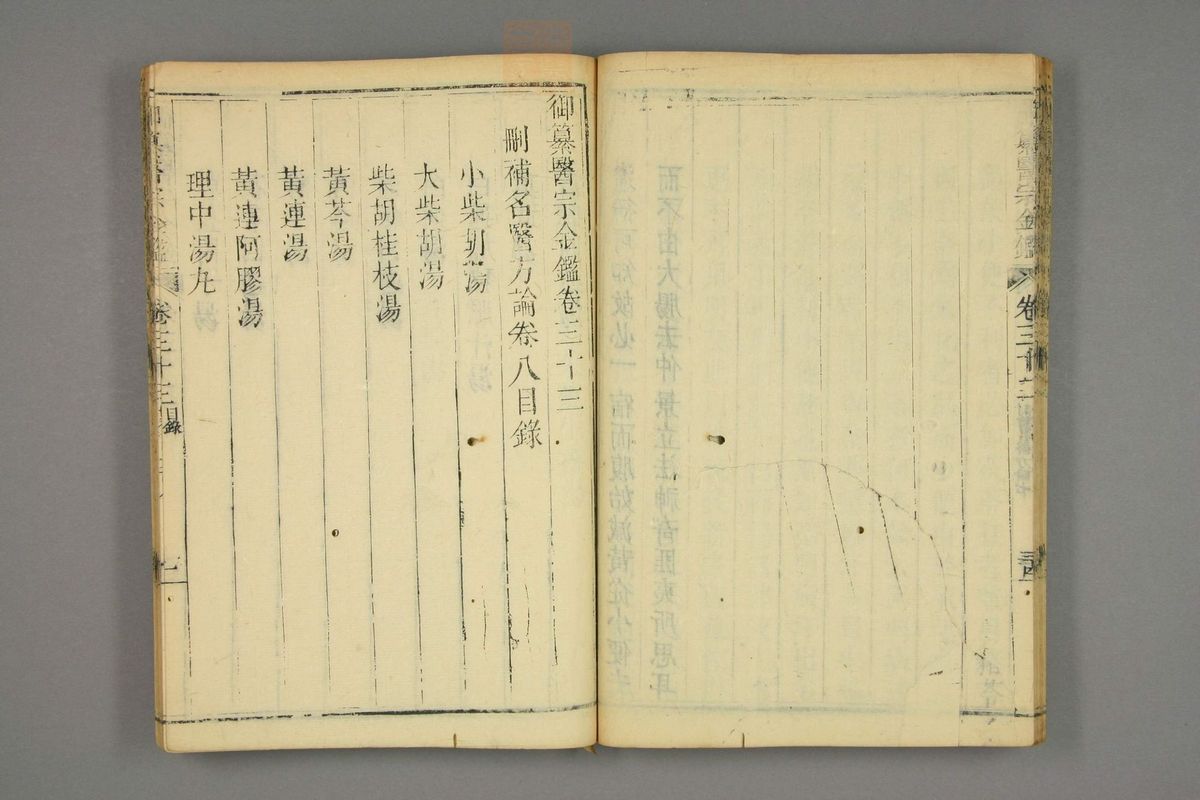 纂醫宗金鑑
卷三十二
御纂醫宗金鑑卷三十三
刪補名醫方論卷八目錄
小柴胡湯
大柴胡湯
柴胡桂枝湯
黃芩湯
黃連湯
黃連阿膠湯
理中湯丸
卷三十三
目錄
一